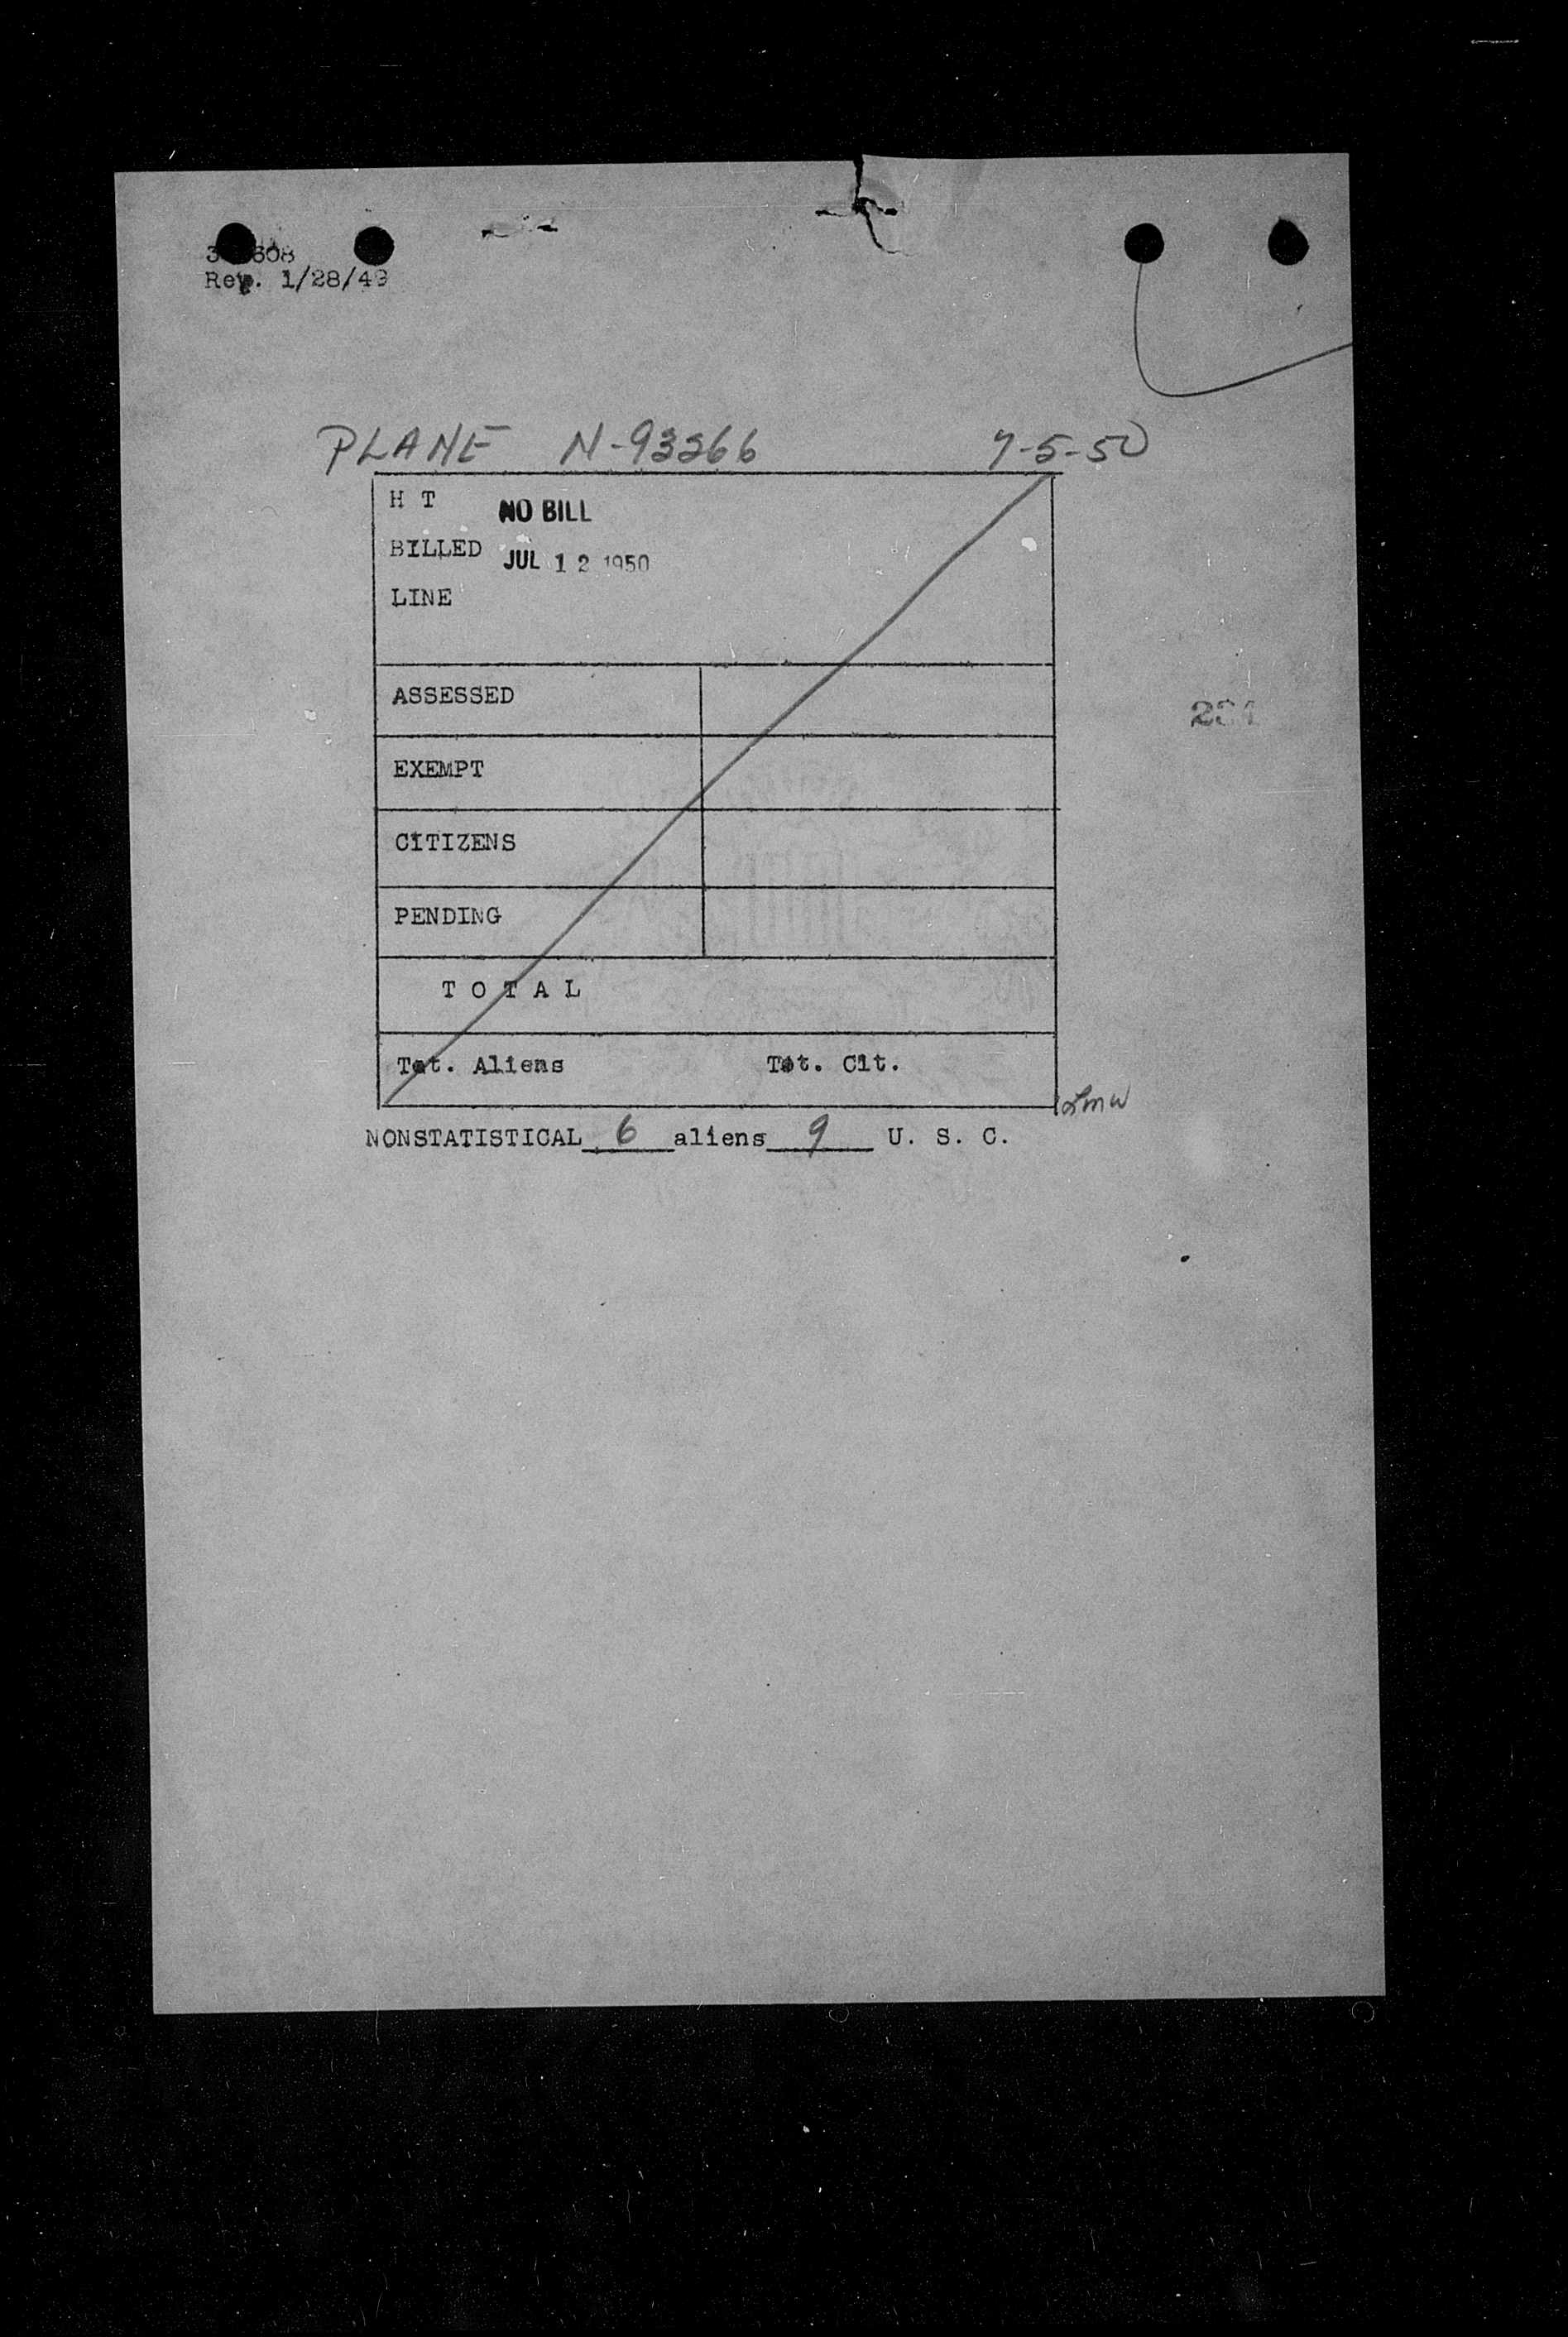 Rev. 1/28/49
PLANE N-93266 7-5-50
H T NO BILL
BILLED JUL 12 1950
LINE
ASSESSED
EXEMPT
CITIZENS
PENDING
TOTAL
Tot. Aliens Tot. Cit.
NONSTATISTICAL 6 aliens 9 U. S. C.